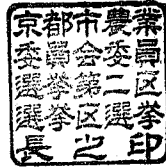 京都市農業
委員会委員
選挙第二区
選挙区選挙
長之印